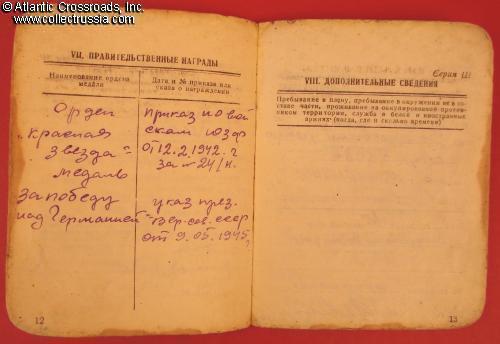 © Atlantic Crossroads, Inc.
www.collectrussia.com
VII. ПРАВИТЕЛЬСТВЕННЫЕ НАГРАДЫ
Наименование ордена
медали
Дата и № приказа или
указа о награждении
Орден
„Красная
звезда"
медаль
За победу
над Германией"
приказ по вой
скам ЮЗФ
от 12.2.1942 г
за № 24/н.
указ през.
Вер. сов. СССР
от 9.05.1945г
12
Серия
VIII. ДОПОЛНИТЕЛЬНЫЕ СВЕДЕНИЯ
Пребывание в плену, пребывание в окружении не в со-
ставе части, проживание на оккупированной против-
ником территории, служба в белой и иностранных
армиях (когда, где и сколько времени)
13